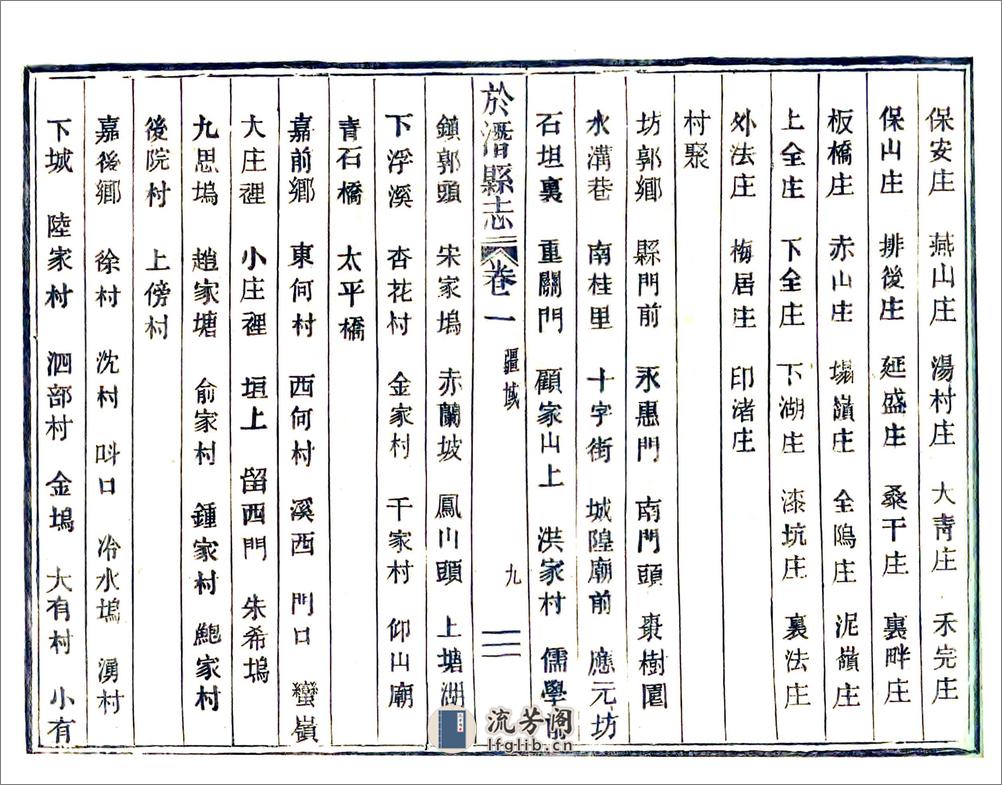 保安庄　燕山庄　湯村庄　大靑庄　禾完庄
保山庄　排後庄　延盛庄　桑干庄　裏畔庄
板橋庄　赤山庄　塌嶺庄　全鳴庄　泥嶺庄
上全庄　下全庄　下湖庄　漆坑庄　裏法庄
外法庄　梅居庄　印渚庄
村聚
坊郭鄉　縣門前　永惠門　南門頭　棗樹園
水溝巷　南桂里　十字街　城隍廟前　應元坊
石坦裏　重關門　顧家山上　洪家村　儒學
於潛縣志　卷一　疆域　九
鎮郭頭　宋家塢　赤蘭坡　鳳川頭　上塘湖
下浮溪　杏花村　金家村　干家村　仰山廟
青石橋　太平橋
嘉前鄉　東何村　西何村　溪西　門口　蠻嶺
大庄裡　小庄裡　垣上　留西門　朱希塢
九思塢　趙家塘　俞家村　鍾家村　鮑家村
後院村　上傍村
嘉後鄉　徐村　沈村　呌口　冷水塢　湧村
下城　陸家村　泗部村　金塢　大有村　小有
流芳阁
lfglib.cn